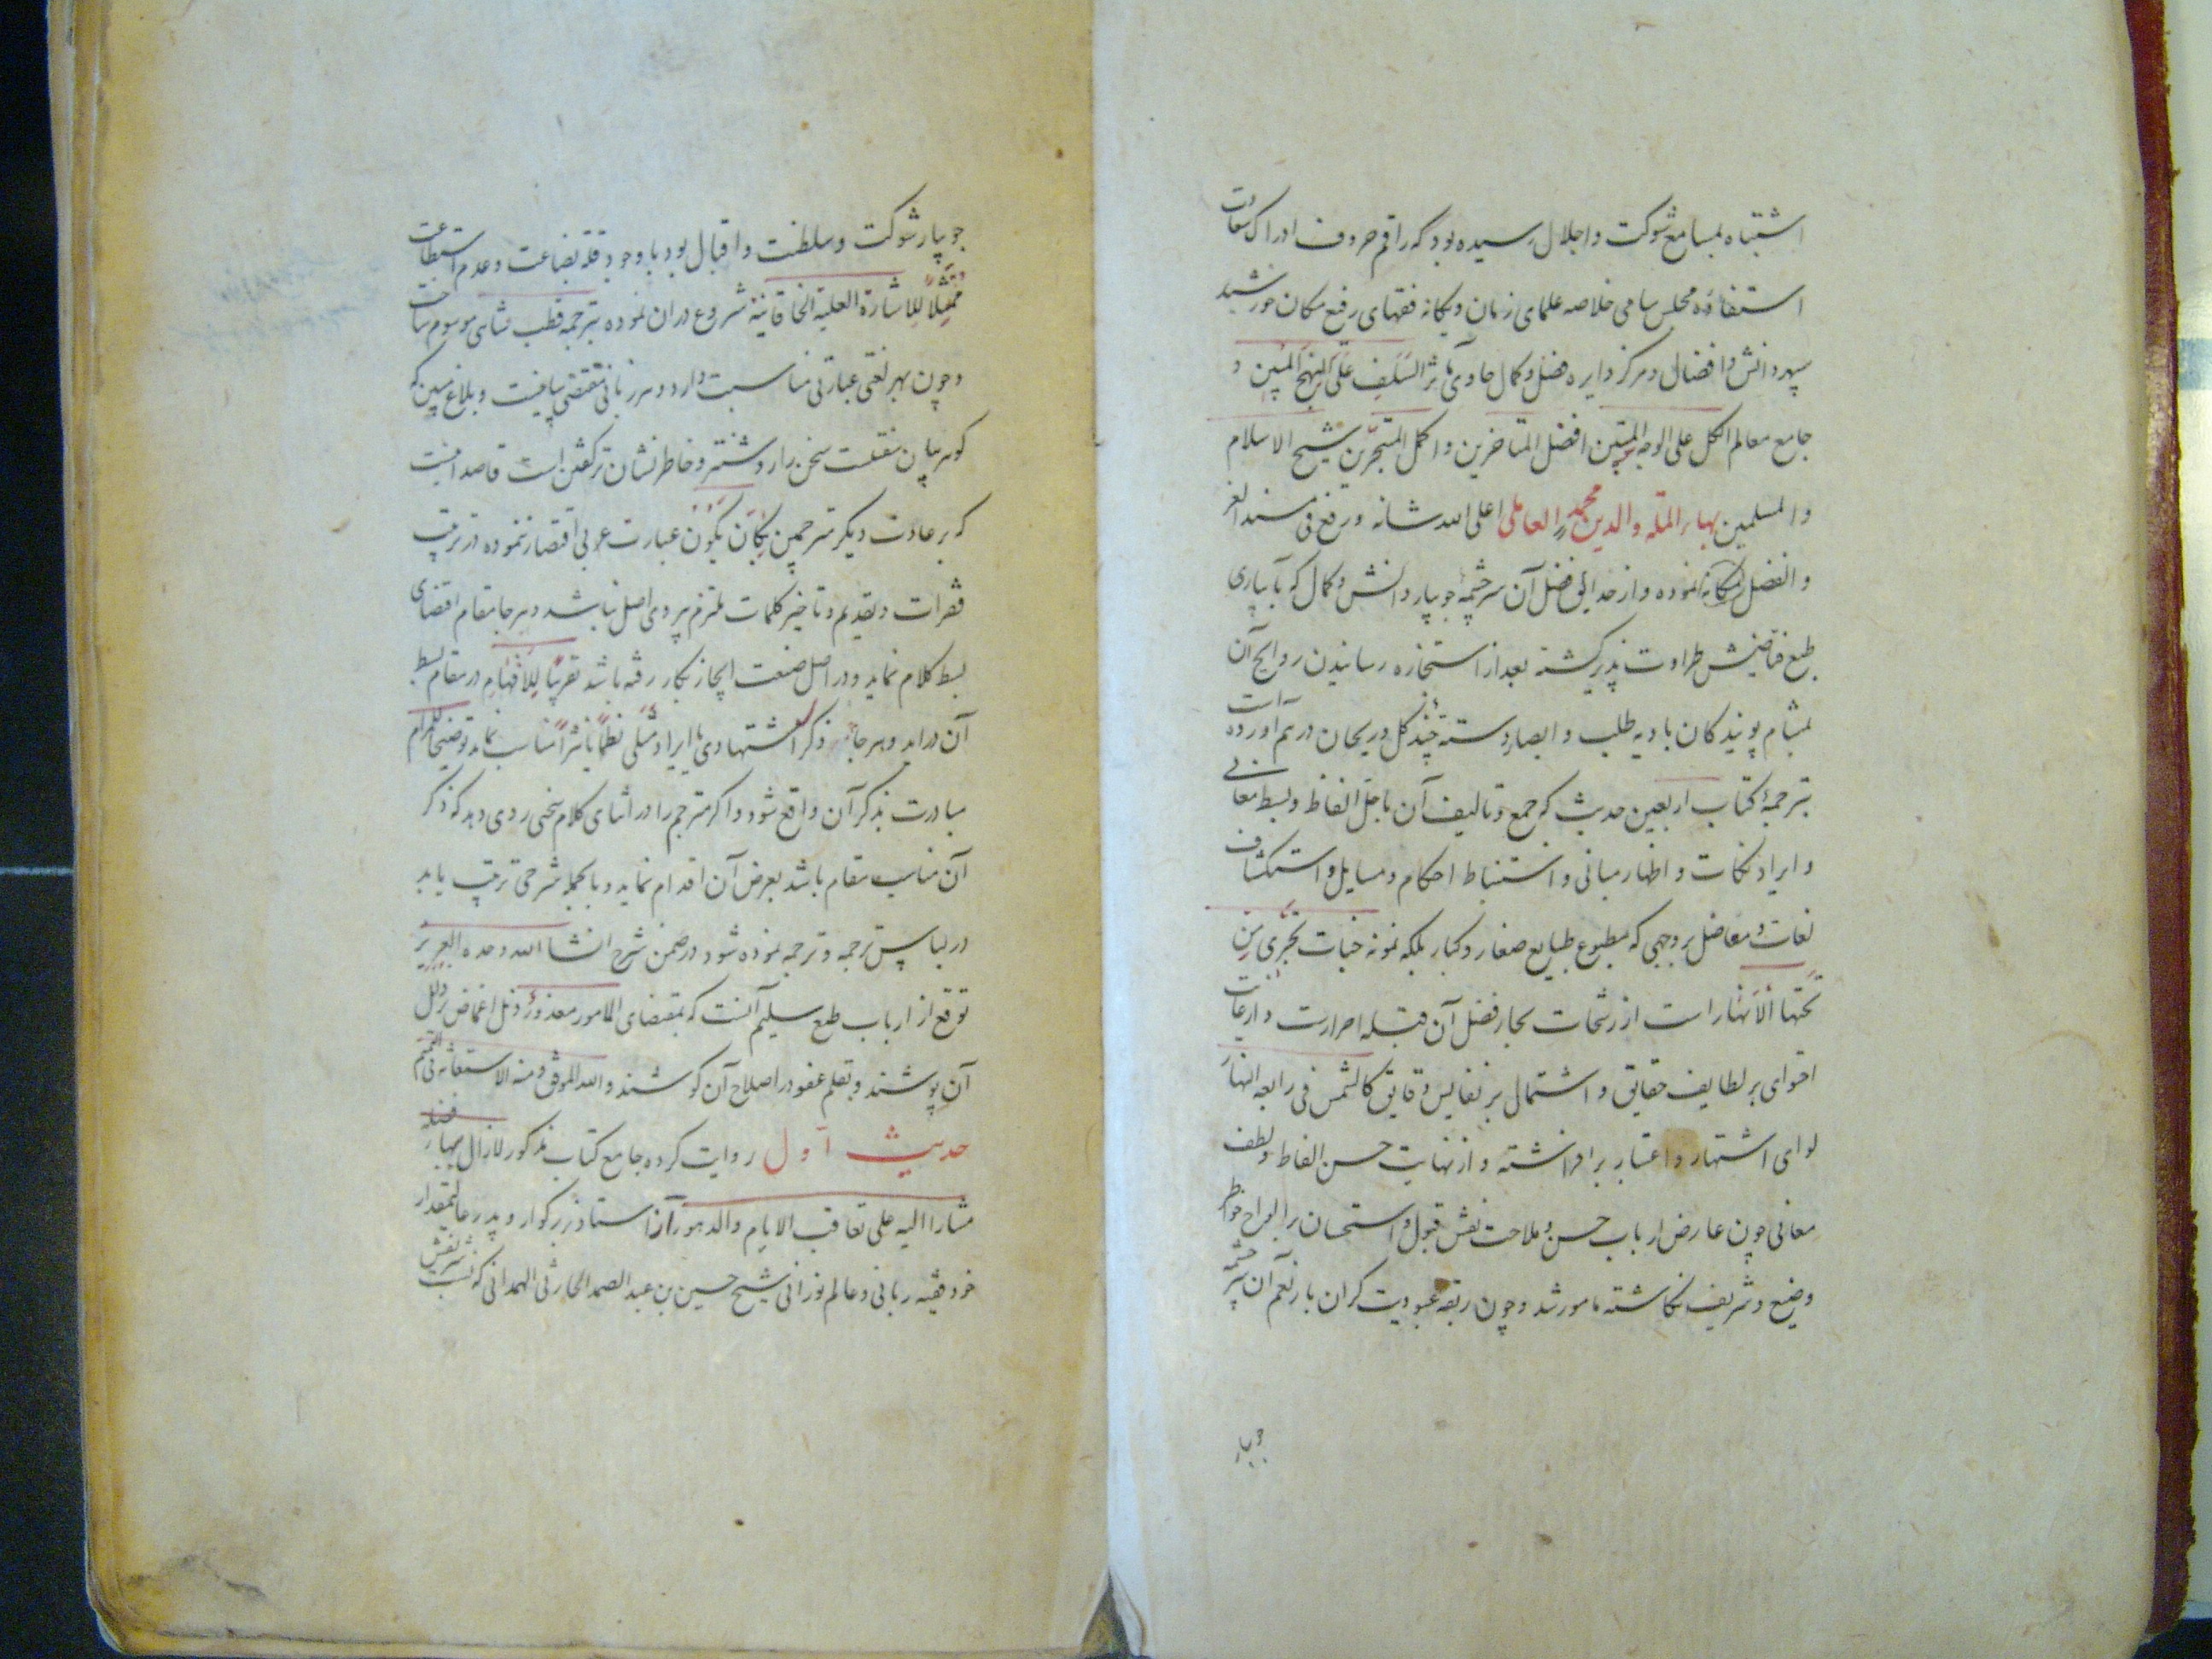 اشتباه بمسامع شوکت و اجلال رسیده بود که راقم حروف ادراک سعادت
استفاده مجلس سامی خلاصه علمای زمان و یکانه فقهای رفیع مکان خورشید
سپهر دانش و افضال و مرکز دایره فضل و کمال حاوی مآثر السلف علی النهج المبین و
جامع معالم الکل علی الوجه المتین افضل المتاخرین و اکمل المتبحرین شیخ الاسلام
و المسلمین بهاء الملة و الدین محمد العاملی اعلی الله شانه و رفع فی مسند العز
و الفضل مکانه نموده و از حدایق فضل آن سرچشمه جویبار دانش و کمال که بآبیاری
طبع فیاضش طراوت پذیر کشته بعد از استخاره رسانیدن روایح آن
بمشام پویندکان بادیه طلب و ابصار دسته چند کل و ریحان در هم آورده
بترجمهٔ کتاب اربعین حدیث که جمع و تالیف آن با حل الفاظ و بسط معانی
و ایراد نکات و اظهار مبانی و استنباط احکام و مسایل و استکشاف
لغات و معاضل بر وجهی که مطبوع طبایع صغار و کبار بلکه نمونه جنات تجری من
تحتها الانهار است از رشحات بحار فضل آن قبله احرارست و از غایت
احتوای بر لطایف حقایق و اشتمال بر نفایس دقایق کالشمس فی رابعه النهار
لوای اشتهار و اعتبار برافراشته و از نهایت حسن الفاظ و لطف
معانی چون عارض ارباب حسن و ملاحت نقش قبول و استحسان بر الواح خواطر
وضیع و شریف نکاشته مامور شد و چون ربقه عبودیت کران بار نعم آن سرچشمه
جویبار
جویبار شوکت و سلطنت و اقبال بود با وجود قلة بضاعت و عدم استطاعت
ممتثلا للاشارة العلیة الخاقانیة شروع دران نموده بترجمه قطب شاهی موسوم ساخت
و چون بهر لغتی عبارتی مناسبت دارد و هر زبانی مقتضی بیانیست و بلاغ مبین که
کوهر بیان منقبت سخن را روشنتر و خاطرنشان تر کفتن است قاصد انیست
که بر عادت دیکر مترجمین بکان یکون عبارت عربی اقتصار ننموده در ترتیب
فقرات و تقدیم و تاخیر کلمات ملتزم پیروی اصل نباشد و هر جا مقام اقتضای
بسط کلام نماید و در اصل صنعت ایجاز بکار رفته باشد تقریبا للافهام در مقام بسط
آن دراید و هر جا ذکر استشهادی یا ایراد مثلی نظما یا نثرا مناسب نماید توضیحا للمرام
مبادرت بذکر آن واقع شود و اکر مترجم را در اثنای کلام سخنی روی دهد که ذکر
آن مناسب مقام باشد بعرض آن اقدام نماید و بالجمله شرحی ترتیب یابد
در لباس ترجمه و ترجمه نموده شود در ضمن شرح انشا الله وحده العزیز
توقع از ارباب طبع سلیم آنست که بمقتضای المامور معذور ذیل اغماض بر زلل
آن پوشند و بقلم عفو در اصلاح آن کوشند و الله الموفق و منه الاستعانه فی التتمیم
حدیث اول روایت کرده جامع کتاب مذکور لازال بهار فضله
مشارا الیه علی تعاقب الایام و الدهور از استاد بزرکوار و پدر عالیمقدار
خود فقیه ربانی و عالم نورانی شیخ حسین بن عبد الصمد الحارثی الهمدانی که نسب شریفش